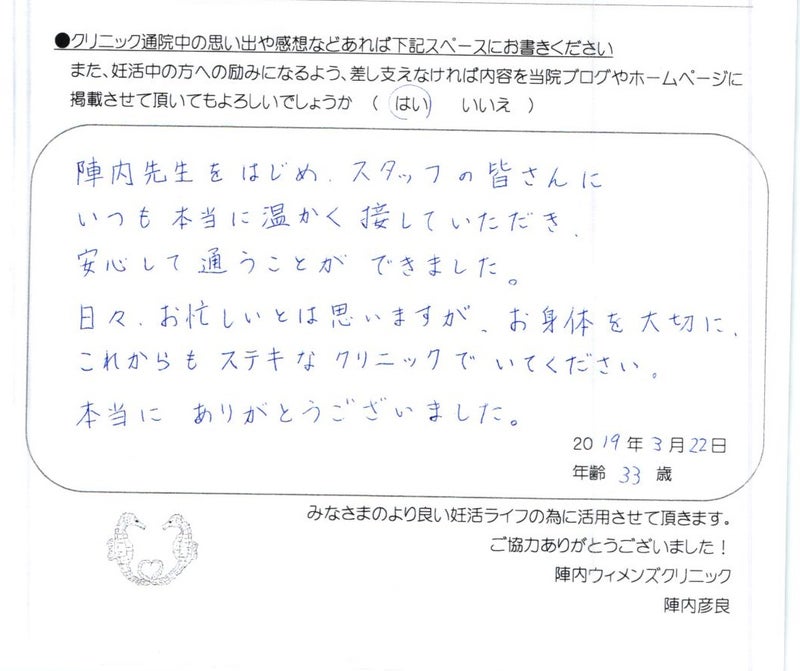 ●クリニック通院中の思い出や感想などあれば下記スペースにお書きください
また、妊活中の方への励みになるよう、差し支えなければ内容を当院ブログやホームページに
掲載させて頂いてもよろしいでしょうか （ はい いいえ ）
陣内先生をはじめ、スタッフの皆さんに
いつも本当に温かく接していただき、
安心して通うことができました。
日々、お忙しいとは思いますが、お身体を大切に、
これからもステキなクリニックでいてください。
本当に ありがとうございました。
2019年3月22日
年齢 33 歳
みなさまのより良い妊活ライフの為に活用させて頂きます。
ご協力ありがとうございました！
陣内ウィメンズクリニック
陣内彦良